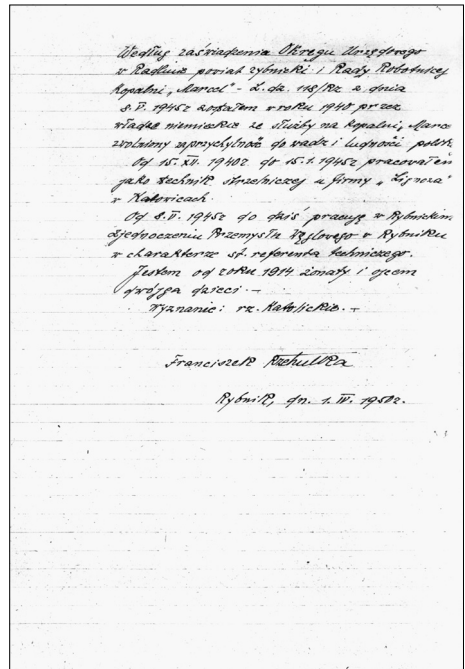 Według zaświadczenia Okręgu Urzędowego
w Radlinie powiat rybnicki i Rady Robotniczej
kopalni „Marcel" - L.dz. 148/Rz z dnia
8.V. 1945r zostałem w roku 1940 przez
władze niemieckie ze służby na kopalni „Marce
zwolniony za przychylność do wadz i ludności polsk
Od 15. XII. 1940r do 15.1.1945r pracowałem
jako technik strzelniczej u firmy „Lignoza"
w Katowicach.
Od 8.II. 1945r do dziś pracuję w Rybnickim
Zjednoczeniu Przemysłu Węglowego w Rybniku
w charakterze st. referenta technicznego.
Jestem od roku 1914 żonaty i ojcem
dwojga dzieci. -
wyznanie: rz. Katolickie. -
Franciszek Rzehulka
Rybnik, dn. 1. IV. 1950r.